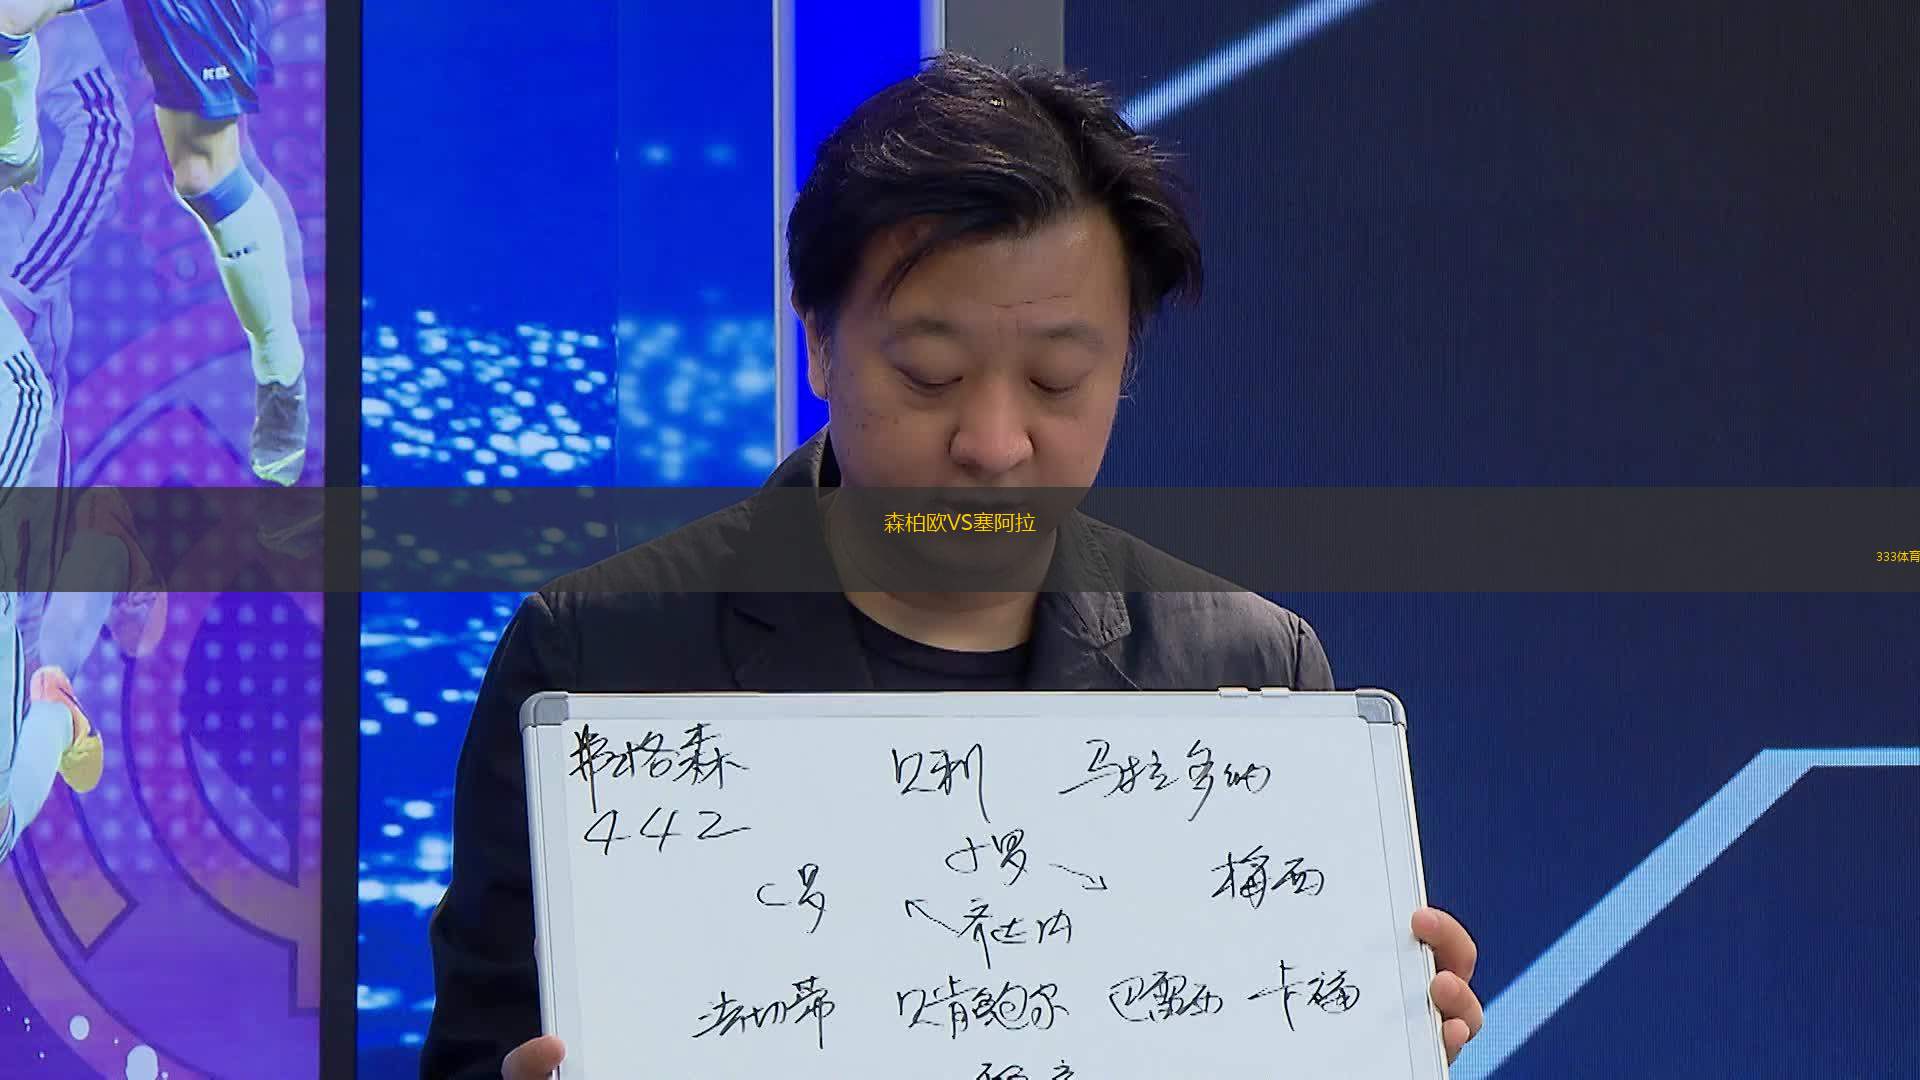 KEL
森柏欧VS塞阿拉
333体育
弗格森 贝利 马拉多纳
442
小罗
C罗 梅西
齐达内
法切蒂 贝肯鲍尔 巴雷西 卡福